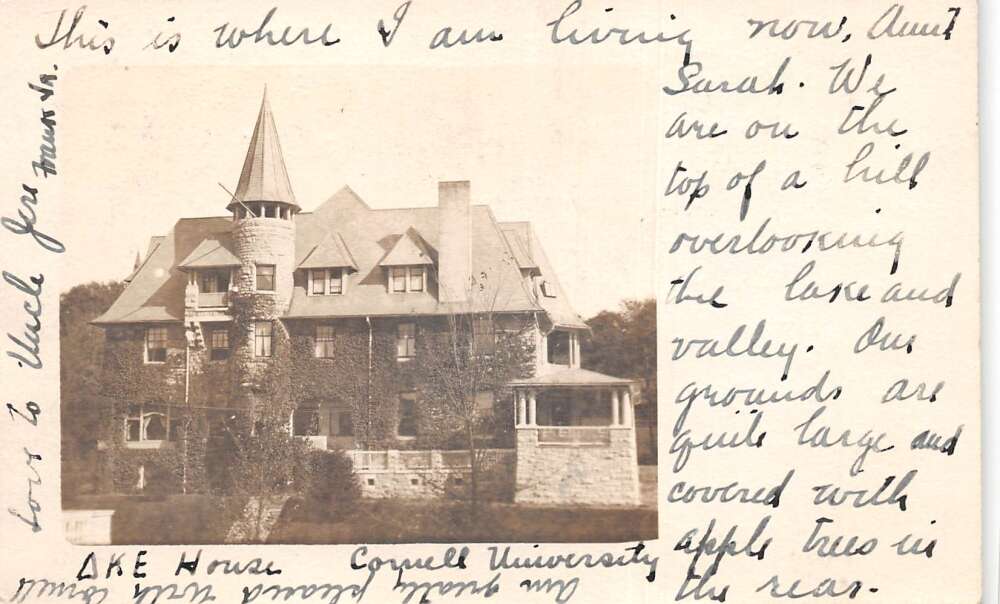 This is where I am living now, Aunt
Sarah. We
are on the
top of a hill
overlooking
the lake and
valley. Our
grounds are
quite large and
covered with
apple trees in
the rear.
ΔKE House Cornell University
Am greatly pleased with Cornell
Love to Uncle Jere